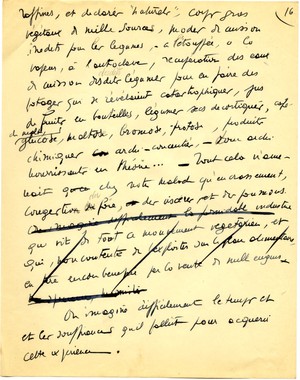 16
raffinés, et déclarés "naturels", corps gras
végétaux de mille sources, modes de cuisson
inédits pour les légumes, à l'étouffée, à la
vapeur, à l'autoclave, récupération des eaux
de cuisson desdits légumes pour en faire des
potages qui se révélaient catastrophiques, jus
de fruits en bouteilles, légumes secs décortiqués, café
de malt,
glucose, maltose, bromose, protose, produits
chimiques archi-
nourrissants en théorie... Tout cela n'ame-
nait qu'à chez notre malade qu'encrassement,
congestion du foie, des viscères et des poumons.
On imagine difficilement la formidable industrie
qui vit de tout ce mouvement végétarien, et
qui, non contente de l'exploiter sur le plan alimentaire
en tire encore bénéfice par la vente de mille
On imagine difficilement le temps et
et les souffrances qu'il fallut pour acquérir
cette expérience.